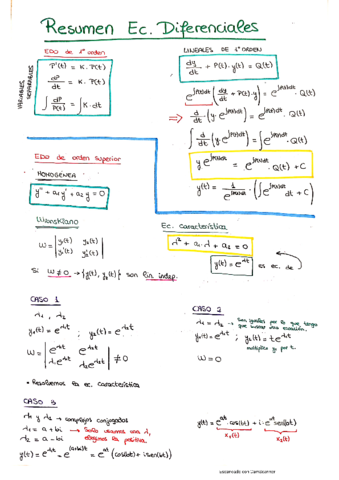 Resumen Ec. Diferenciales
EDO de 1º orden
VARIABLES SEPARABLES
P'(t) = K · P(t)
dP/dt = K · P(t)
∫ dP/P(t) = ∫ K·dt
LINEALES DE 1º ORDEN
dy/dt + P(t)·y(t) = Q(t)
e^∫P(t)dt (dy/dt + P(t)·y) = e^∫P(t)dt · Q(t)
⇒ d/dt (y·e^∫P(t)dt) = e^∫P(t)dt · Q(t)
∫ d/dt (y·e^∫P(t)dt) = ∫ e^∫P(t)dt · Q(t)
y e^∫P(t)dt = e^∫P(t)dt · Q(t) + C
y(t) = 1/e^∫P(t)dt · (∫ e^∫P(t)dt dt + C)
EDO de orden superior
HOMOGÉNEA
y'' + a₁y' + a₂y = 0
Wronskiano
W = | y₁(t) y₂(t) |
| y₁'(t) y₂'(t) |
Si W ≠ 0 → {y₁(t), y₂(t)} son lin. indep.
Ec. característica
λ² + a₁·λ + a₂ = 0
y(t) = e^λt es ec. de
CASO 1
λ₁, λ₂
y₁(t) = e^λ₁t ; y₂(t) = e^λ₂t
W = | e^λ₁t e^λ₂t | ≠ 0
| λ₁e^λ₁t λ₂e^λ₂t |
• Resolvemos la ec. característica
CASO 2
λ₁ = λ₂ → Son iguales por lo que tengo
que buscar una ecuación.
y₁(t) = e^λt ; y₂(t) = t e^λt
multiplico y₁ por t.
W = 0
CASO 3
λ₁ y λ₂ → complejos conjugados
λ₁ = a + bi → Solo usamos una λ,
λ₂ = a - bi elegimos la positiva.
y(t) = e^λt = e^(a+bi)t = e^at (cos(bt) + i sen(bt))
y(t) = e^at · cos(bt) + i · e^at sen(bt)
x₁(t) x₂(t)
Escaneado con CamScanner